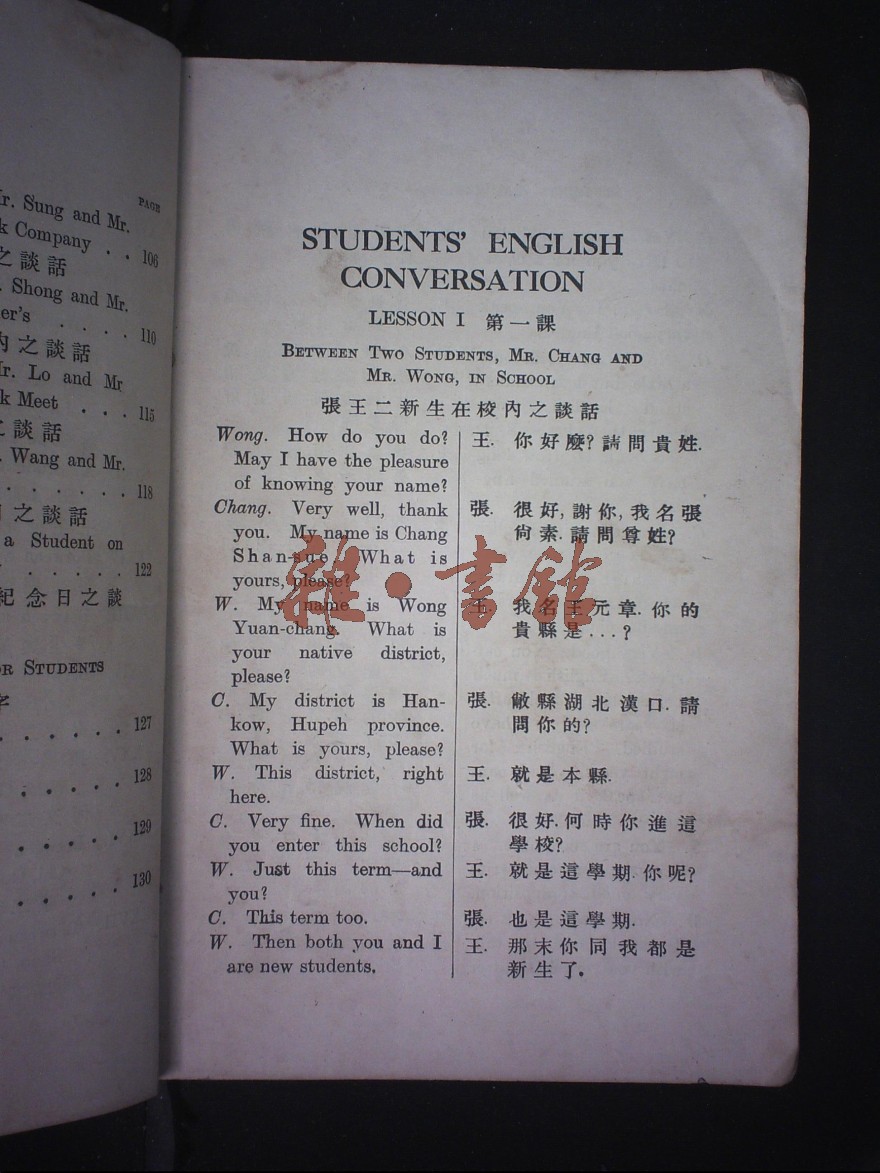 PAGE
Mr. Sung and Mr.
Company . . 106
之談話
Shong and Mr.
. . . . 110
內之談話
Mr. Lo and Mr
Meet . . . 115
談話
Wang and Mr.
. . . . . . 118
之談話
a Student on
. . . . . 122
紀念日之談
STUDENTS
. . . . . . 127
. . . . . 128
. . . . . 129
. . . . . 130
STUDENTS' ENGLISH
CONVERSATION
LESSON I 第一課
BETWEEN TWO STUDENTS, MR. CHANG AND
MR. WONG, IN SCHOOL
張王二新生在校內之談話
Wong. How do you do?
May I have the pleasure
of knowing your name?
Chang. Very well, thank
you. My name is Chang
Shan-sue. What is
yours, please?
W. My name is Wong
Yuan-chang. What is
your native district,
please?
C. My district is Han-
kow, Hupeh province.
What is yours, please?
W. This district, right
here.
C. Very fine. When did
you enter this school?
W. Just this term—and
you?
C. This term too.
W. Then both you and I
are new students.
王. 你好麼?請問貴姓.
張. 很好,謝你,我名張
尙素.請問尊姓?
王. 我名王元章.你的
貴縣是...?
張. 敝縣湖北漢口.請
問你的?
王. 就是本縣.
張. 很好.何時你進這
學校?
王. 就是這學期.你呢?
張. 也是這學期.
王. 那末你同我都是
新生了.
雜·書館